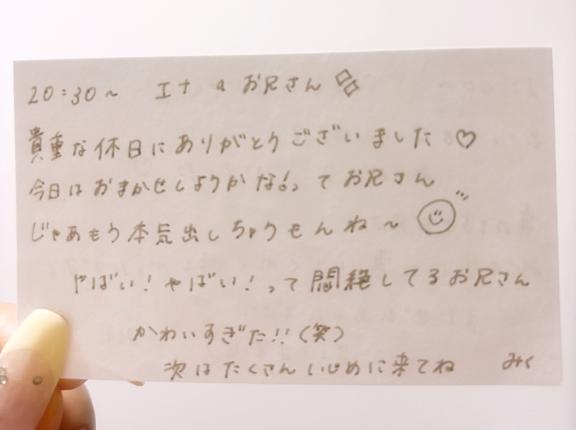 20:30~ エナのお兄さん
貴重な休日にありがとうございました♡
今日はおまかせしようかな!ってお兄さん
じゃあもう本気出しちゃうもんね~
やばい!やばい!って悶絶してるお兄さん
かわいすぎた!!(笑)
次はたくさんいじめに来てね みく